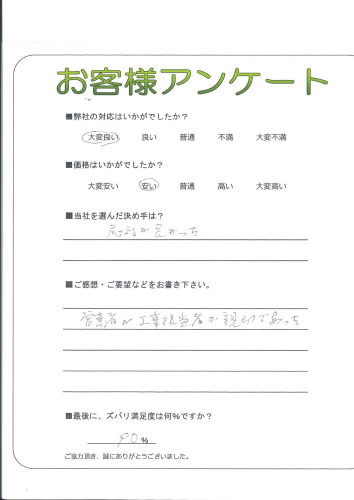 お客様アンケート
■弊社の対応はいかがでしたか？
大変良い 良い 普通 不満 大変不満
■価格はいかがでしたか？
大変安い 安い 普通 高い 大変高い
■当社を選んだ決め手は？
応対が良かった
■ご感想・ご要望などをお書き下さい。
営業者や工事担当者が親切であった
■最後に、ズバリ満足度は何%ですか？
90 %
ご協力頂き、誠にありがとうございました。